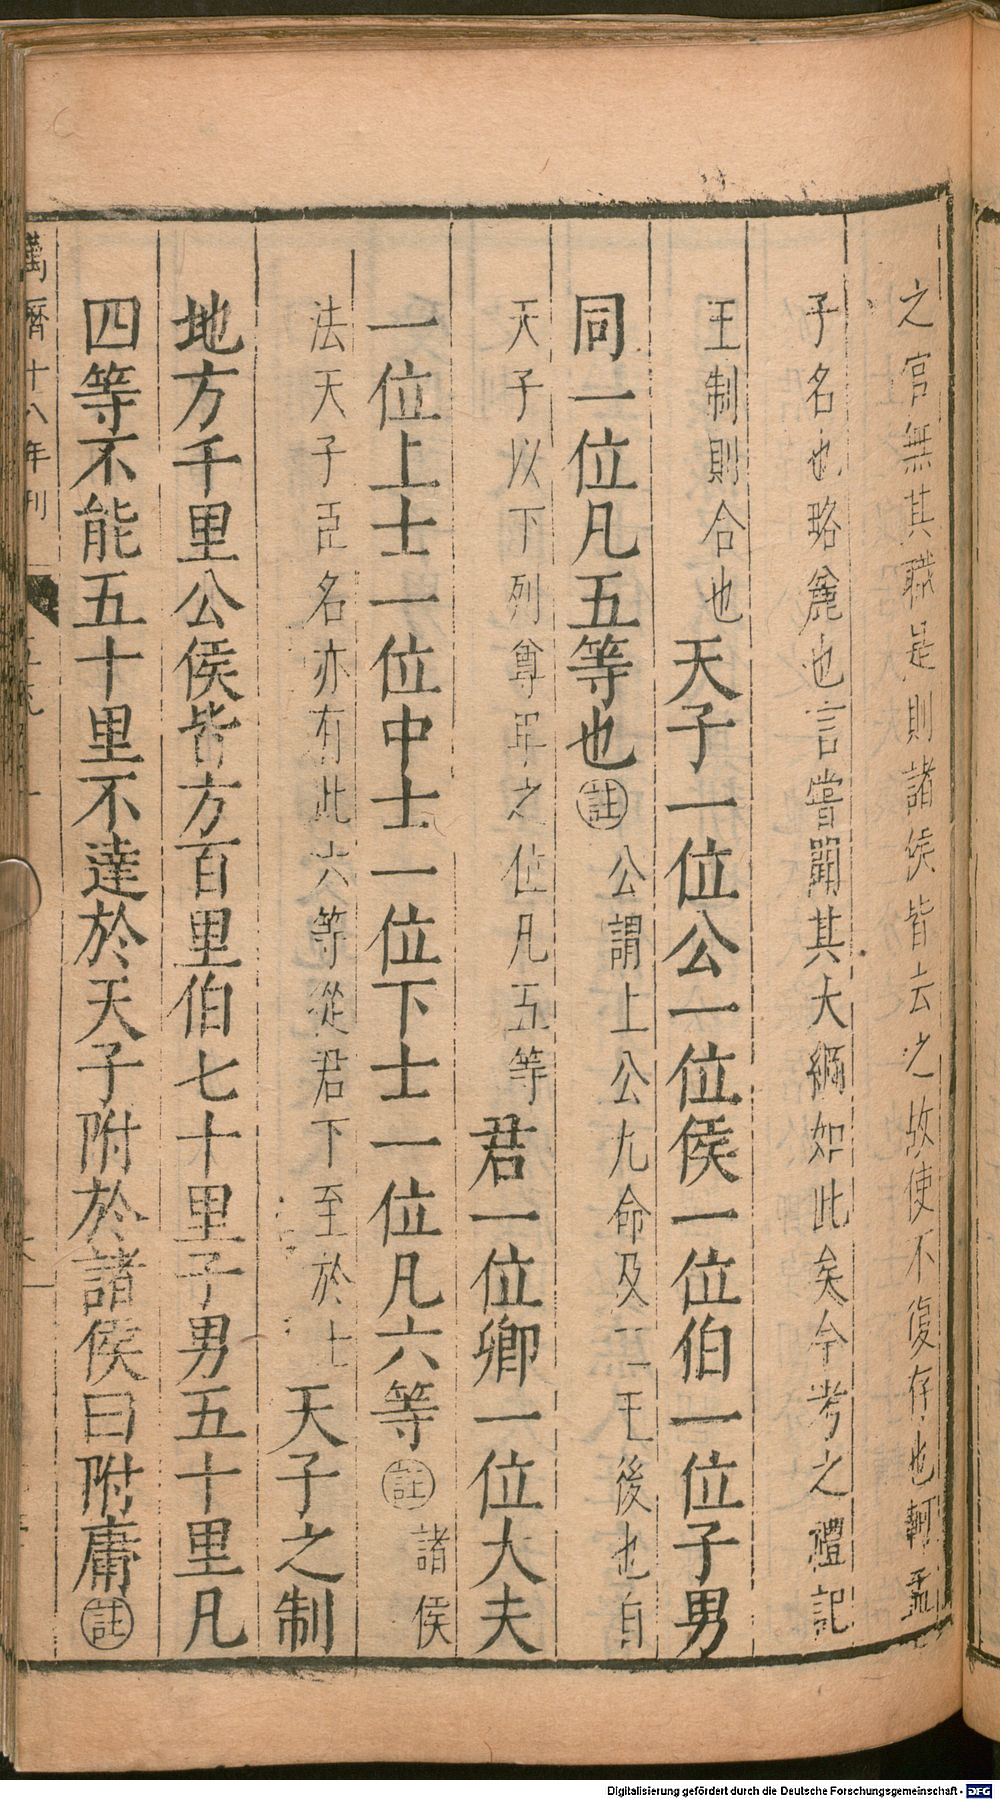 之官無其職是則諸侯皆去之故使不復存也軻孟
子名也略麄也言嘗聞其大綱如此矣今考之禮記
王制則合也天子一位公一位侯一位伯一位子男
同一位凡五等也註公謂上公九命及二王後也自
天子以下列尊卑之位凡五等君一位卿一位大夫
一位上士一位中士一位下士一位凡六等註諸侯
法天子臣名亦有此六等從君下至於士天子之制
地方千里公侯皆方百里伯七十里子男五十里凡
四等不能五十里不達於天子附於諸侯曰附庸註
萬曆十八年刊
Digitalisierung gefördert durch die Deutsche Forschungsgemeinschaft - DFG